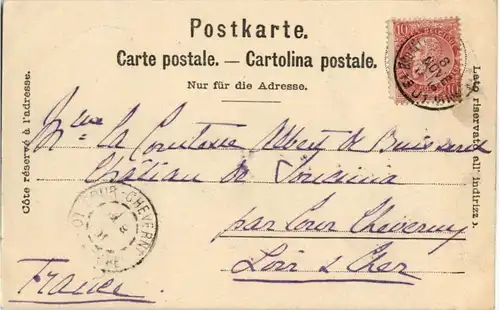 Postkarte.
Carte postale. — Cartolina postale.
Nur für die Adresse.
Côte réservé à l'adresse.
Lato riservato all' indirizzo.
10
8
NOV
Mme La Comtesse Albert de
Château de
par Cour Cheverny
Loir & Cher
France
COUR-CHEVERNY